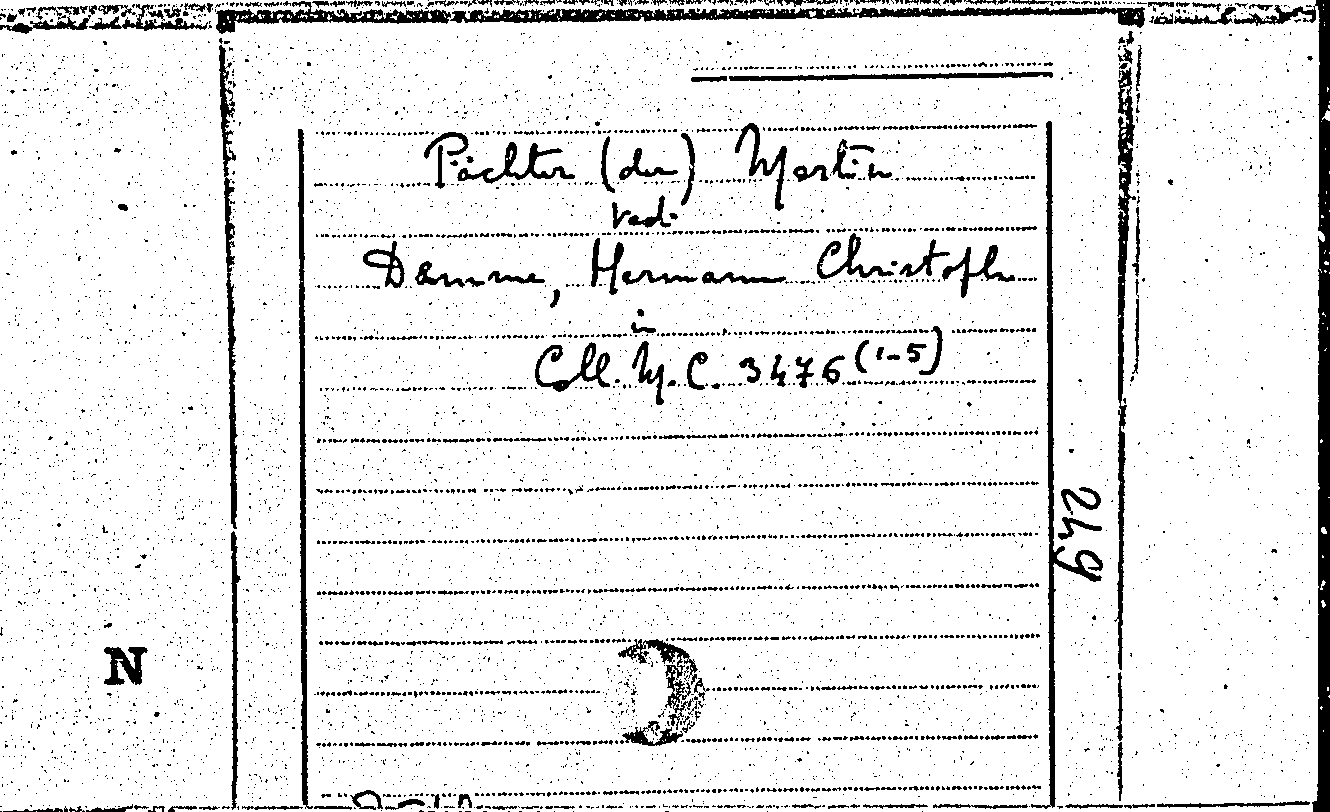 Pächter (der) Martin
ved.
Damme, Hermann Christoph
in
Coll. M. C. 3476 (1-5)
249
N